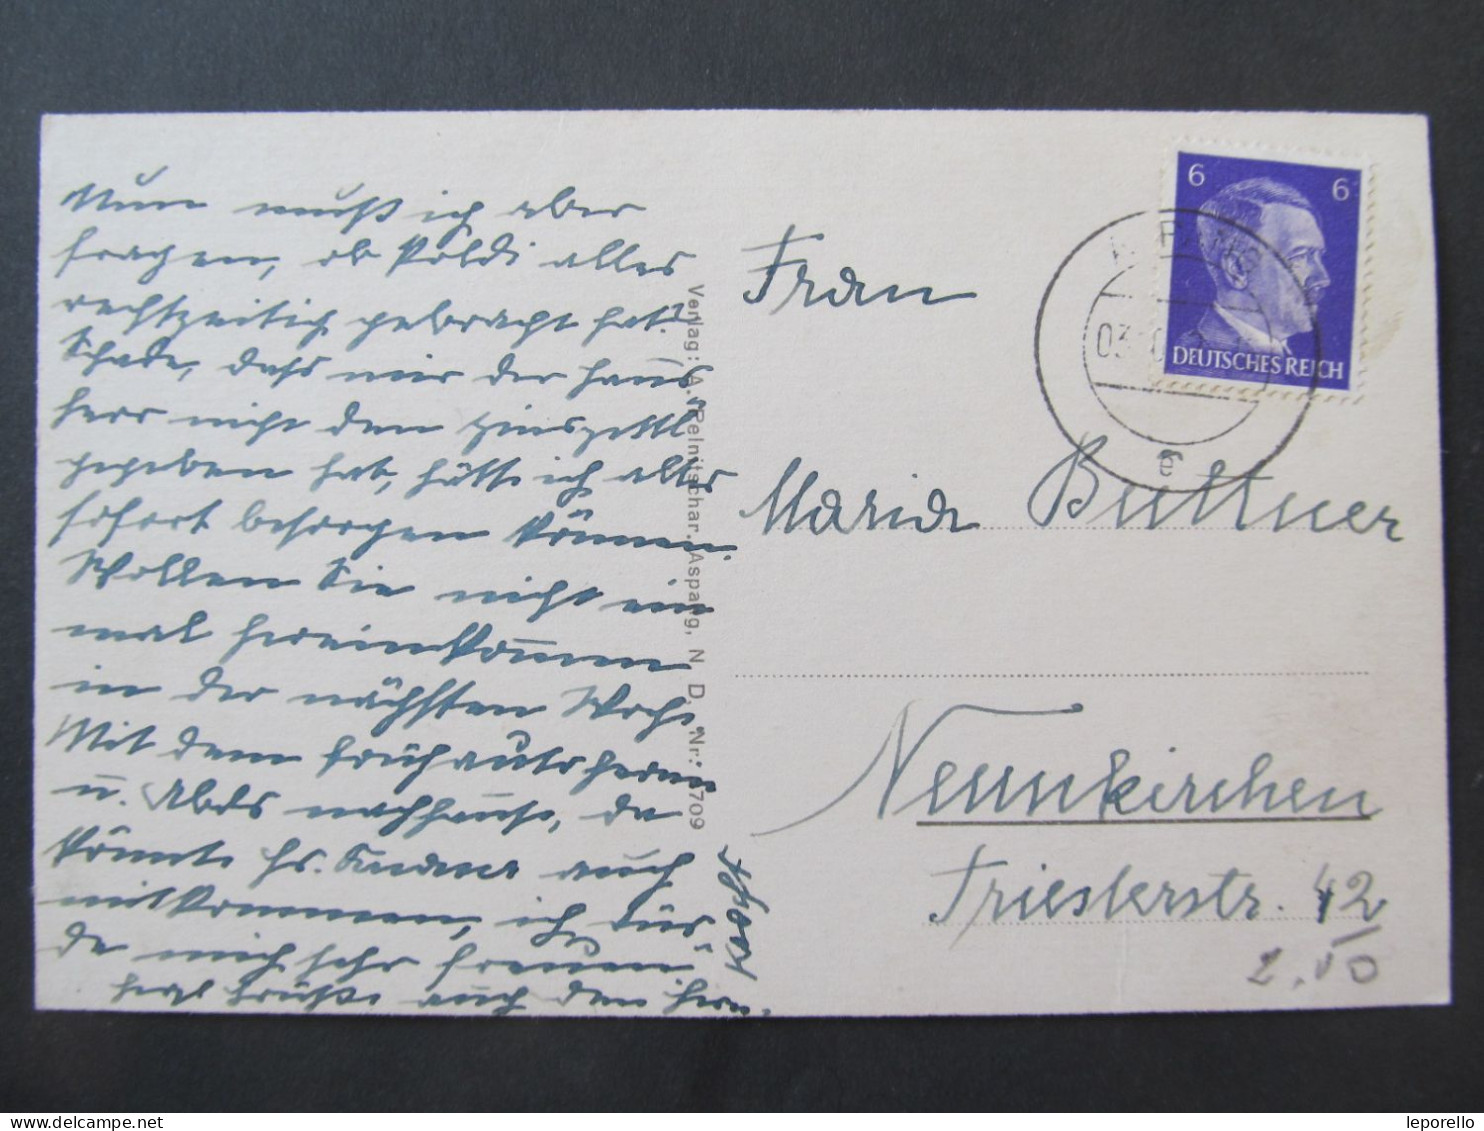 Nun muß ich aber
fragen, ob Poldi alles
rechtzeitig gebracht hat?
Schade, dass mir der Haus
herr nicht den Zinszettl
gegeben hat, hätte ich alles
sofort besorgen können.
Wollen Sie nicht ein
mal hereinkommen
in der nächsten Woche,
Mit dem Frühauto herein
u. Abds nachhause, da
könnte Fr. auch
mitkommen, ich wür-
de mich sehr freuen
Herzl Grüße auch den Herrn
Verlag: A. Reinitschar, Aspang, N D. Nr: 3709
6 6
DEUTSCHES REICH
ASPANG
03
Frau
Maria Buttner
Neunkirchen
Triesterstr. 42